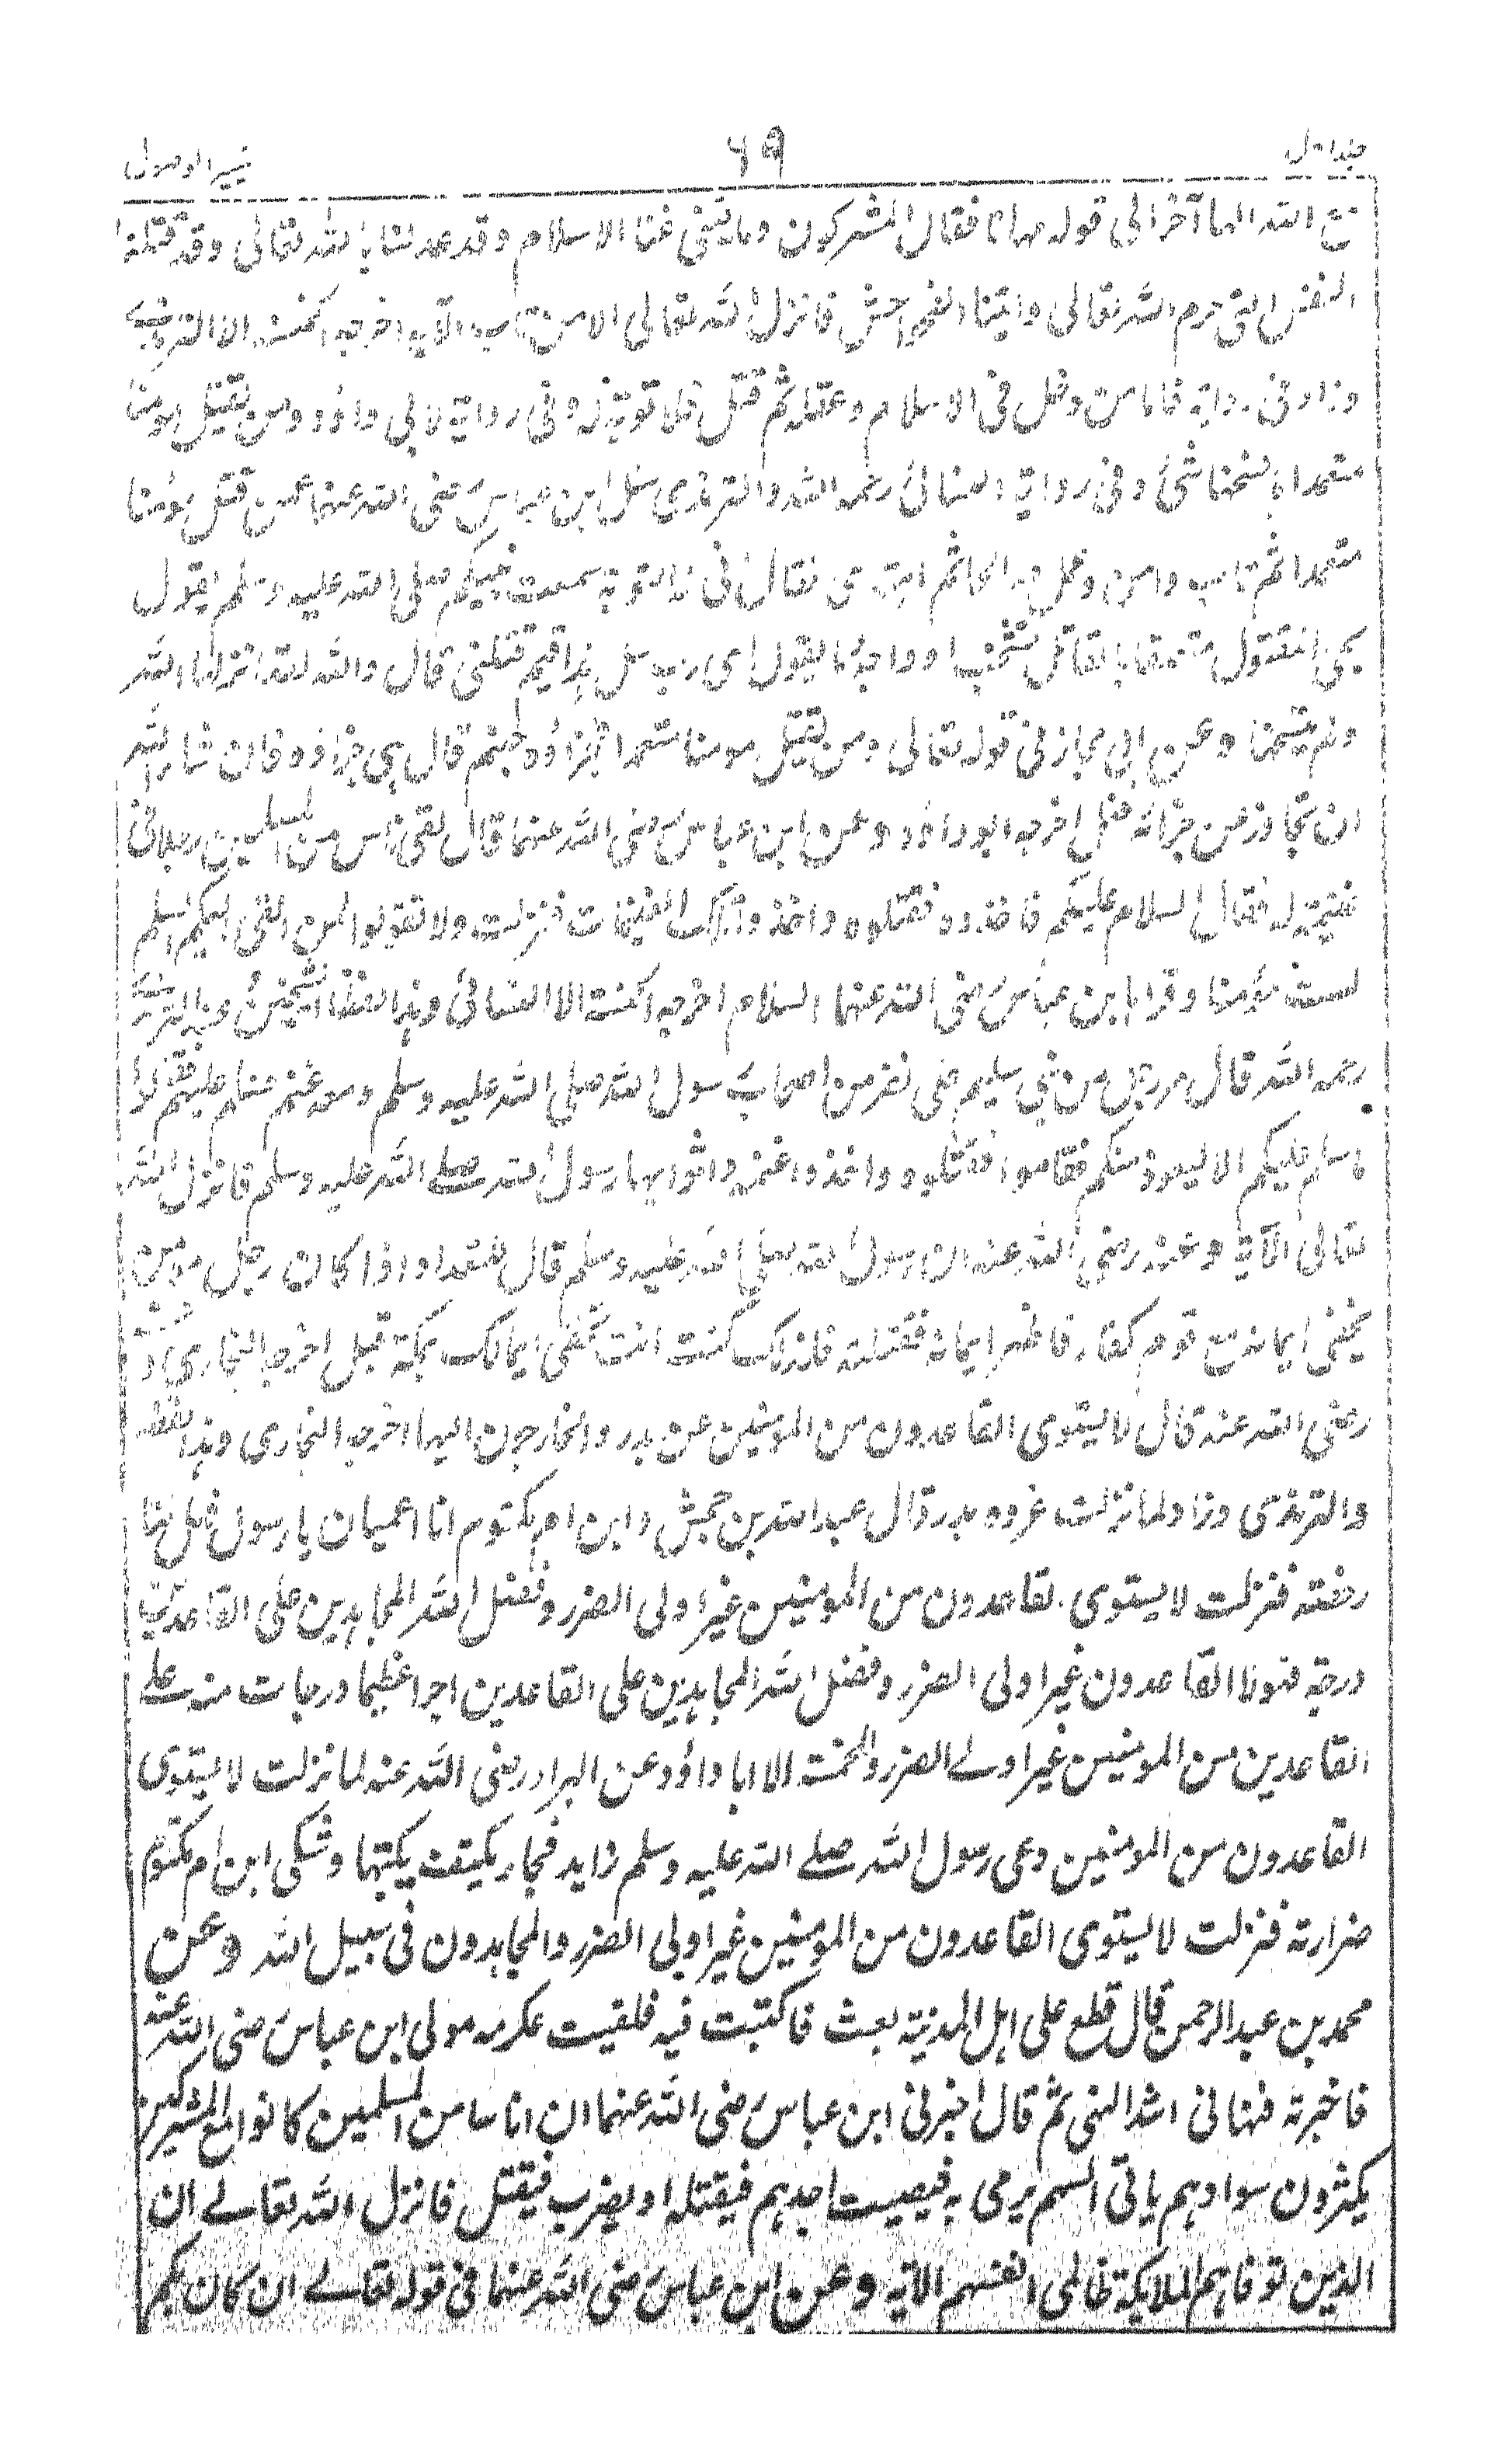 جلد اول ٦٩ تيسير الوصول
مع الله الها آخر الى قوله مهانا فقال المشركون وما يغنى عنا الاسلام وقد عدلنا بالله تعالى وقد قتلنا
النفس التى حرم الله تعالى واتينا الفواحش فانزل الله تعالى الا من تاب الآية اخرجه الخمسة الا الترمذى
وزاد فى رواية فاما من دخل فى الاسلام وعقله ثم قتل فلا توبة له وفى رواية لابى داؤد ومن يقتل مومنا
متعمدا ما نسخها شئ وفى رواية النسائى رحمه الله والترمذى سئل ابن عباس رضى الله عنهما عمن قتل مؤمنا
متعمدا ثم تاب وامن وعمل صالحا ثم اهتدى فقال فانى له التوبة سمعت نبيكم صلى الله عليه وسلم يقول
يجئ المقتول متعلقا بالقاتل تشخب اوداجه دما يقول اى رب سل هذا فيم قتلنى قال والله لقد انزلها الله
ولم ينسخها وعن ابى مجلز فى قوله تعالى ومن يقتل مومنا متعمدا فجزاؤه جهنم قال هى جزاؤه فان شاء الله
ان يتجاوز عن جزائه فعل اخرجه ابو داؤد وعن ابن عباس رضى الله عنهما قال لقى ناس من المسلمين رجلا فى
غنيمة له فقال السلام عليكم فاخذوه فقتلوه واخذوا تلك الغنيمات فنزلت ولا تقولوا لمن القى اليكم السلم
لست مؤمنا وقرأها ابن عباس رضى الله عنهما السلام اخرجه الخمسة الا النسائى وهذا لفظ الشيخين وعند الترمذى
رحمه الله قال مر رجل من بنى سليم على نفر من اصحاب رسول الله صلى الله عليه وسلم ومعه غنم فسلم عليهم فقالوا
ما سلم عليكم الا ليعوذ منكم فقاموا فقتلوه واخذوا غنمه واتوا بها رسول الله صلے الله عليه وسلم فانزل الله
تعالى الآية وعنه رضى الله عنه ان رسول الله صلى الله عليه وسلم قال للمقداد اذا كان رجل مومن
يخفى ايمانه مع قوم كفار فاظهر ايمانه فقتلته فكذلك كنت انت تخفى ايمانك بمكة قبل اخرجه البخارى وعنه
رضى الله عنه قال لا يستوى القاعدون من المومنين عن بدر والخارجون اليها اخرجه البخارى وهذا لفظه
والترمذى وزاد لما نزلت غزوه بدر قال عبد الله بن جحش وابن ام مكتوم انا اعميان يا رسول الله فهل لنا
رخصة فنزلت لا يستوى القاعدون من المومنين غير اولى الضرر وفضل الله المجاهدين على القاعدين
درجة فهؤلاء القاعدون غير اولى الضرر وفضل الله المجاهدين على القاعدين اجرا عظيما درجات منه علے
القاعدين من المومنين غير اولے الضرر وللخمسة الا ابا داؤد عن البراء رضى الله عنه لما نزلت لا يستوى
القاعدون من المومنين دعى رسول الله صلے الله عليه وسلم زايد فجاء بكتف يكتبها وشكى ابن ام مكتوم
ضرارته فنزلت لا يستوى القاعدون من المومنين غير اولى الضرر والمجاهدون فى سبيل الله وعن
محمد بن عبد الرحمن قال قطع على اهل المدينة بعث فاكتتبت فيه فلقيت عكرمه مولى ابن عباس رضى الله عنه
فاخبرته فنهانى اشد النهى ثم قال اخبرنى ابن عباس رضى الله عنهما ان اناسا من المسلمين كانوا مع المشركين
يكثرون سوادهم ياتى السهم يرمى به فيصيب احدهم فيقتله او يضرب فيقتل فانزل الله تعالے ان
الذين توفاهم الملايكة ظالمى انفسهم الاية وعن ابن عباس رضى الله عنهما فى قوله تعالے ان كان بكم